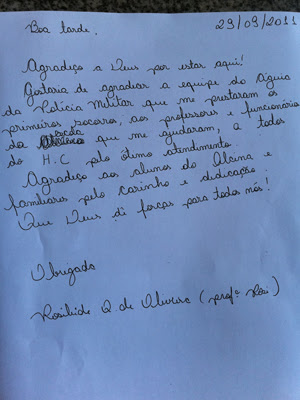 Boa tarde. 29/09/2011
Agradeço a Deus por estar aqui!
Gostaria de agradecer a equipe do Águia
da Polícia Militar que me prestaram os
primeiros socorros, aos professores e funcionários
da escola que me ajudaram, a todos
do H.C pelo ótimo atendimento.
Agradeço aos alunos do Alcina e
familiares pelo carinho e dedicação.
Que Deus dê forças para todos nós!
Obrigado
Rosileide Q. de Oliveira (profª Rosi)